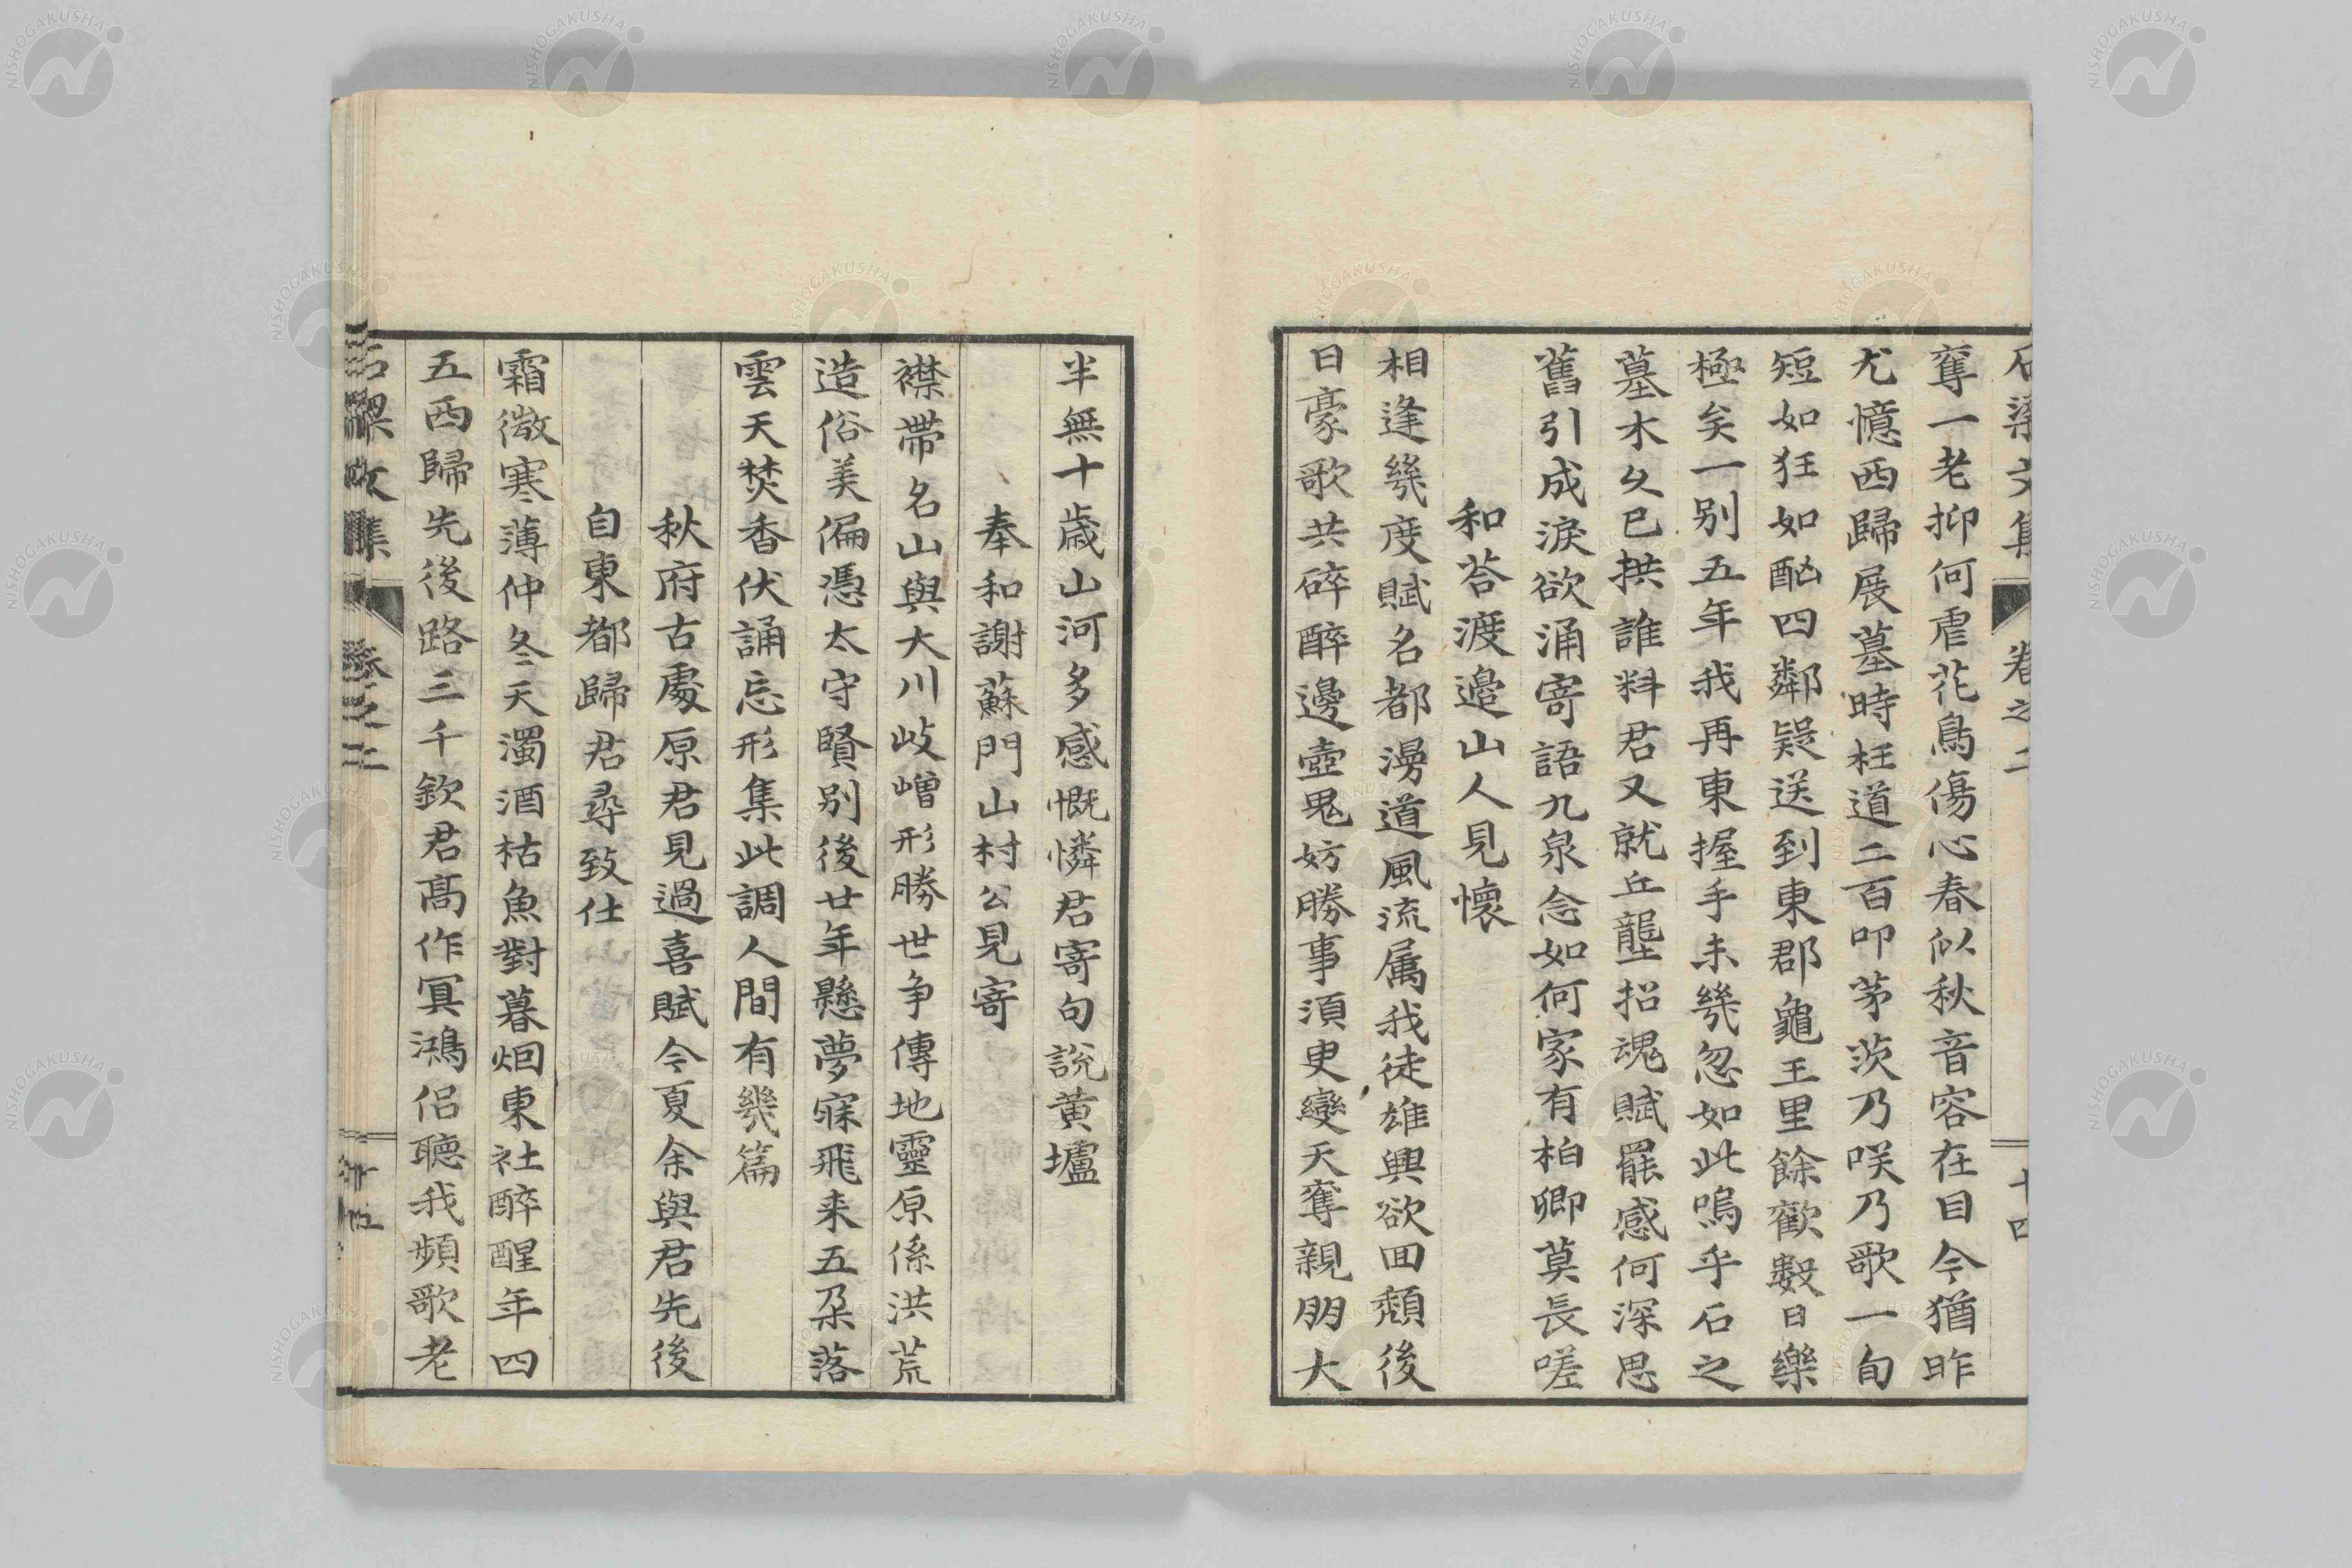 石梁文集 卷之二 十四
奪一老抑何虐花鳥傷心春似秋音容在目今猶昨
尤憶西歸展墓時枉道二百叩茅茨乃咲乃歌一旬
短如狂如酗四鄰疑送到東郡龜王里餘歡數日樂
極矣一別五年我再東握手未幾忽如此嗚乎石之
墓木久已拱誰料君又就丘壟招魂賦罷感何深思
舊引成淚欲涌寄語九泉念如何家有柏卿莫長嗟
和荅渡邉山人見懷
相逢幾度賦名都漫道風流属我徒雄興欲回頽後
日豪歌共碎醉邊壺鬼妨勝事須臾變天奪親朋大
半無十歳山河多感慨憐君寄句説黄壚
奉和謝蘇門山村公見寄
襟帶名山與大川岐嶒形勝世争傳地靈原係洪荒
造俗美偏憑太守賢別後廿年懸夢寐飛来五朶落
雲天焚香伏誦忘形集此調人間有幾篇
秋府古處原君見過喜賦今夏余與君先後
自東都歸君尋致仕
霜微寒薄仲冬天濁酒枯魚對暮烟東社醉醒年四
五西歸先後路三千欽君髙作冥鴻侶聽我頻歌老
石梁文集 卷之二
NISHOGAKUSHA